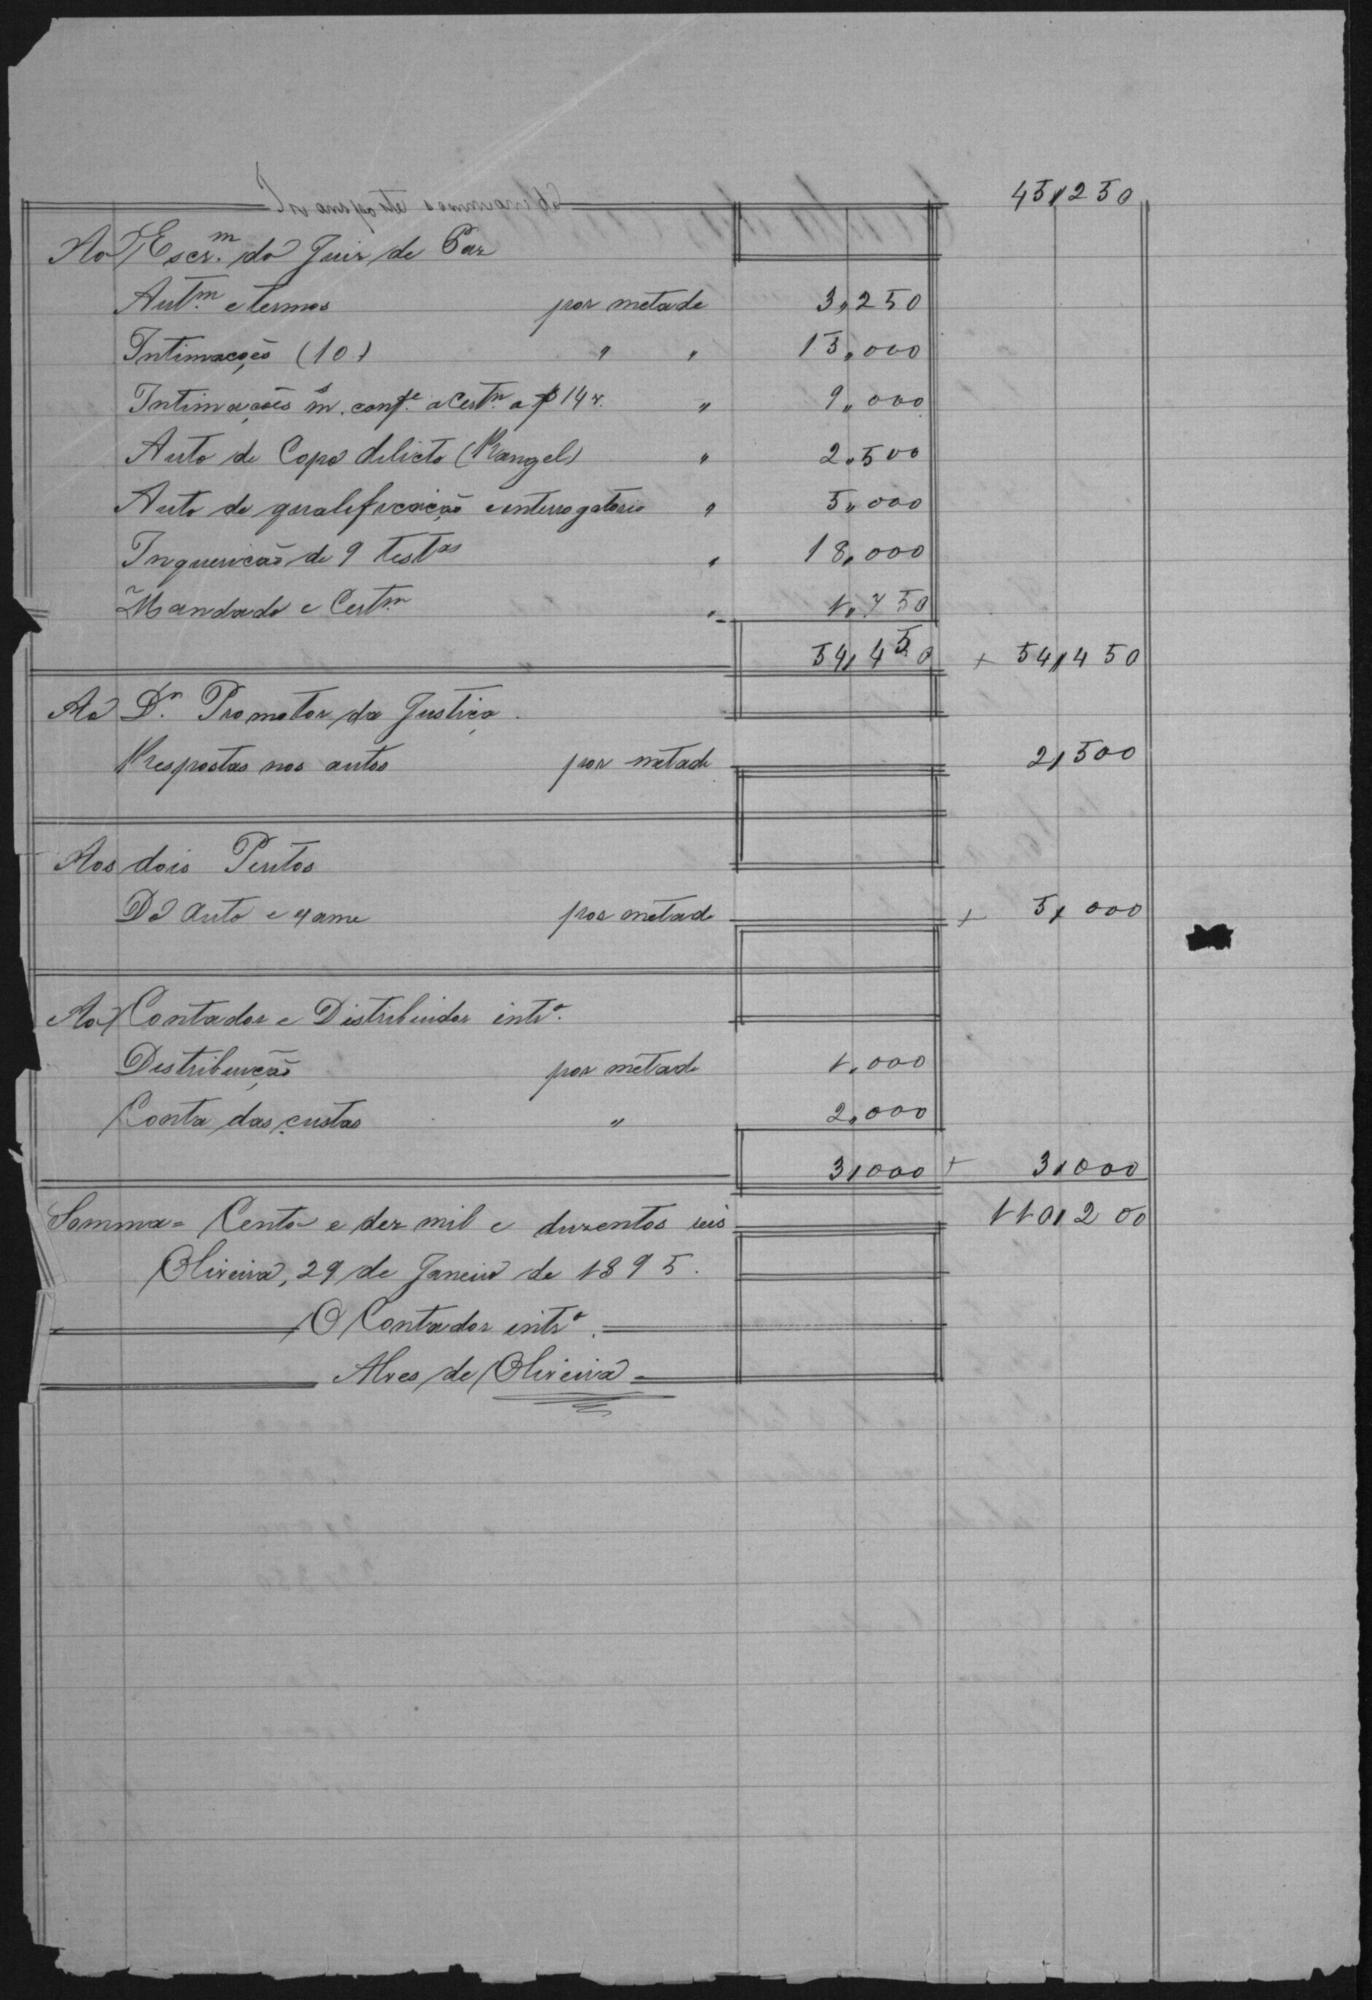 45,250
Ao Escr.m do Juiz de Paz
Aut.m e termos por metade 3,,250
Intimações (10) " " 15,,000
Intimações m.s conf.e a Cert.m a f 14 v. " 9,,000
Auto de Copo delicto (Rangel) " 2,,500
Auto de qualificação e interrogatorio " 5,,000
Inquerição de 9 Test.as " 18,,000
Mandado e Cert.m " 1,,750
54,450 + 54,450
Ao D.r Promotor da Justiça.
Respostas nos autos por metade 2,500
Aos dois Peritos
Do auto exame por metade + 5,000
Ao Contador e Distribuidor intr.o
Distribuição por metade 1,000
Conta das custas " 2,000
3,000 + 3,000
Somma = Cento e dez mil e duzentos reis 110,200
Oliveira, 29 de Janeiro de 1895.
O Contador intr.o
Alves de Oliveira